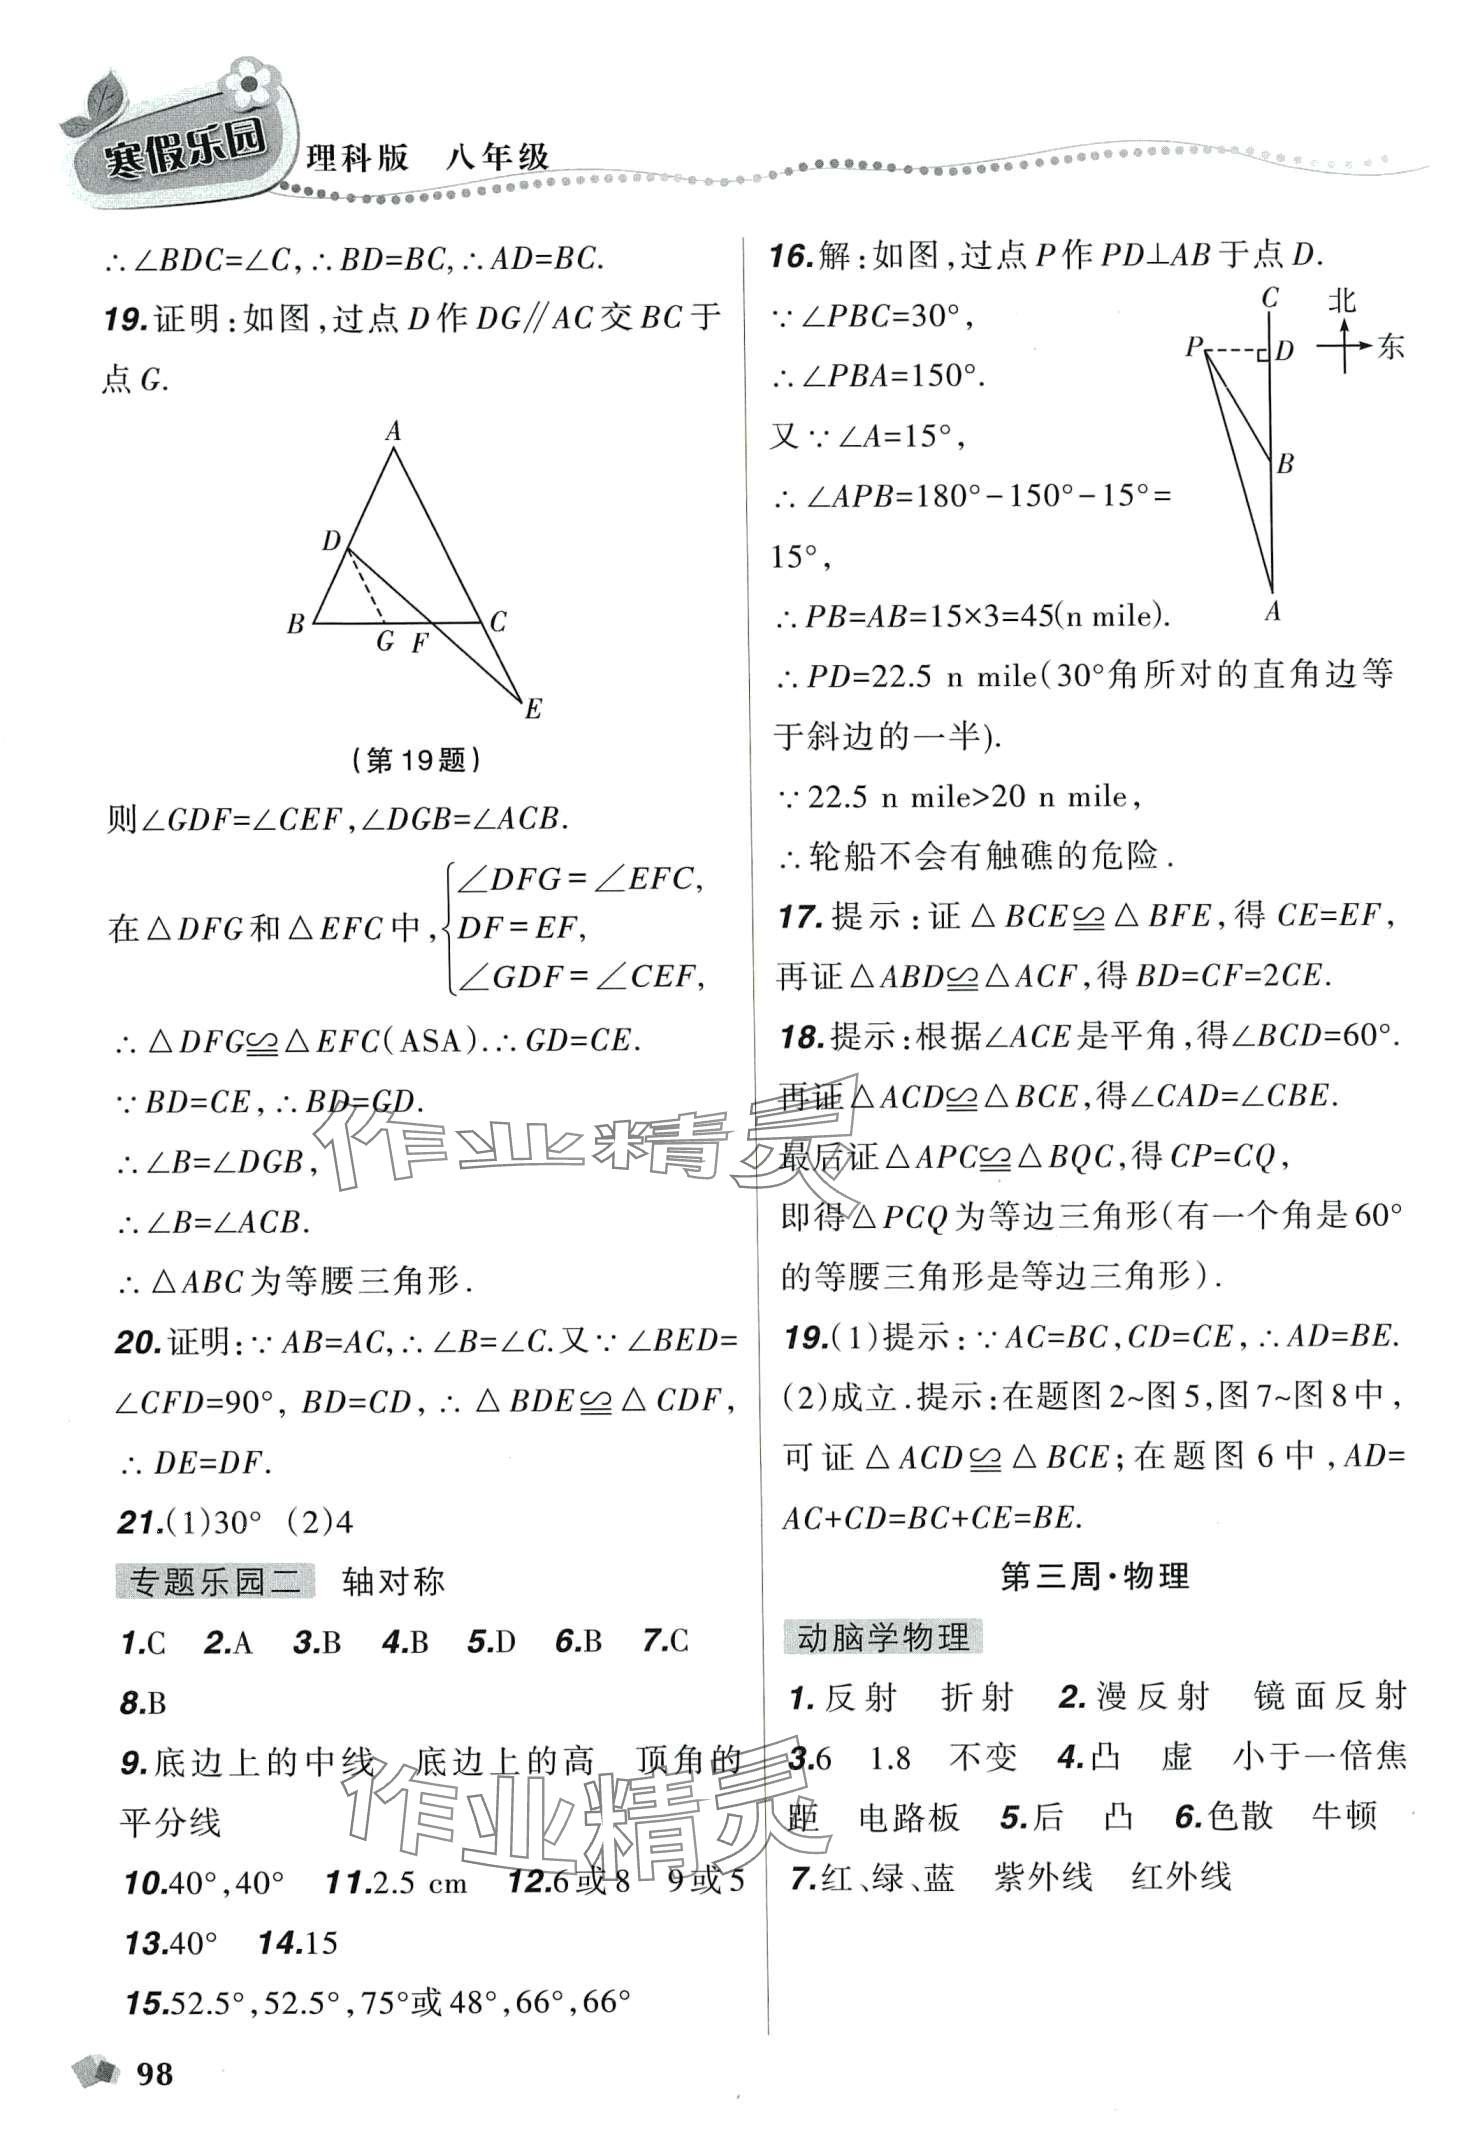 寒假乐园
理科版 八年级
∴∠BDC=∠C,∴BD=BC,∴AD=BC.
19.证明:如图,过点D作DG∥AC交BC于
点G.
A
D
B
G
F
C
E
(第19题)
则∠GDF=∠CEF,∠DGB=∠ACB.
∠DFG=∠EFC,
在△DFG和△EFC中,{DF=EF,
∠GDF=∠CEF,
∴△DFG≌△EFC(ASA).∴GD=CE.
∵BD=CE,∴BD=GD.
∴∠B=∠DGB,
∴∠B=∠ACB.
∴△ABC为等腰三角形.
20.证明:∵AB=AC,∴∠B=∠C.又∵∠BED=
∠CFD=90°,BD=CD,∴△BDE≌△CDF,
∴DE=DF.
21.(1)30° (2)4
专题乐园二 轴对称
1.C 2.A 3.B 4.B 5.D 6.B 7.C
8.B
9.底边上的中线 底边上的高 顶角的
平分线
10.40°,40° 11.2.5 cm 12.6或8 9或5
13.40° 14.15
15.52.5°,52.5°,75°或48°,66°,66°
16.解:如图,过点P作PD⊥AB于点D.
∵∠PBC=30°,
∴∠PBA=150°.
又∵∠A=15°,
∴∠APB=180°-150°-15°=
15°,
∴PB=AB=15×3=45(n mile).
C
北
P
D
东
B
A
∴PD=22.5 n mile(30°角所对的直角边等
于斜边的一半).
∵22.5 n mile>20 n mile,
∴轮船不会有触礁的危险.
17.提示:证△BCE≌△BFE,得CE=EF,
再证△ABD≌△ACF,得BD=CF=2CE.
18.提示:根据∠ACE是平角,得∠BCD=60°.
再证△ACD≌△BCE,得∠CAD=∠CBE.
最后证△APC≌△BQC,得CP=CQ,
即得△PCQ为等边三角形(有一个角是60°
的等腰三角形是等边三角形).
19.(1)提示:∵AC=BC,CD=CE,∴AD=BE.
(2)成立.提示:在题图2~图5,图7~图8中,
可证△ACD≌△BCE;在题图6中,AD=
AC+CD=BC+CE=BE.
第三周·物理
动脑学物理
1.反射 折射 2.漫反射 镜面反射
3.6 1.8 不变 4.凸 虚 小于一倍焦
距 电路板 5.后 凸 6.色散 牛顿
7.红、绿、蓝 紫外线 红外线
作业精灵
作业精灵
98